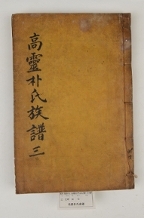 高靈朴氏族譜 三